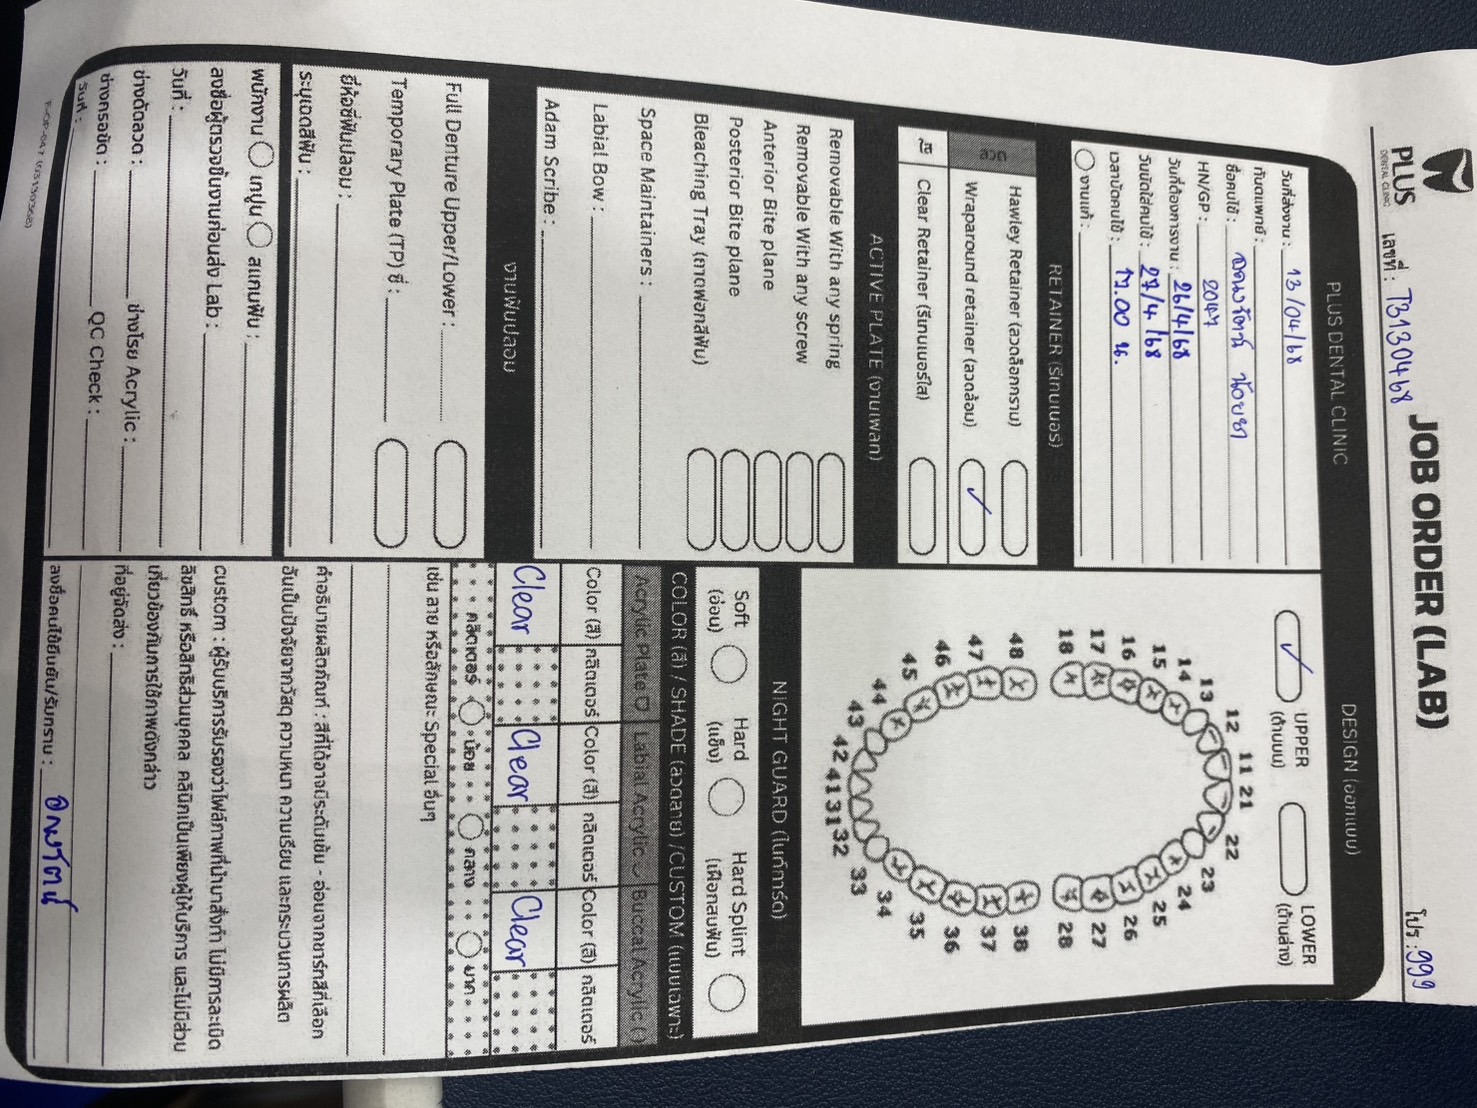 PLUS
DENTAL CLINIC
เลขที่ : TB130468
JOB ORDER (LAB)
โปร : 999
PLUS DENTAL CLINIC
วันที่ส่งงาน : 13/04/68
ทันตแพทย์ :
ชื่อคนไข้ :
HN/GP : 2047
วันที่ต้องการงาน : 26/4/68
วันนัดใส่คนไข้ : 27/4/68
เวลานัดคนไข้ : 17.00 น.
งานแก้ :
RETAINER (รีเทนเนอร์)
ลวด
Hawley Retainer (ลวดล็อกกราม)
Wraparound retainer (ลวดล้อม) ✓
ใส
Clear Retainer (รีเทนเนอร์ใส)
ACTIVE PLATE (งานเพลท)
Removable With any spring
Removable With any screw
Anterior Bite plane
Posterior Bite plane
Bleaching Tray (ถาดฟอกสีฟัน)
Space Maintainers :
Labial Bow :
Adam Scribe :
งานฟันปลอม
Full Denture Upper/Lower :
Temporary Plate (TP) ซี่ :
ยี่ห้อซี่ฟันปลอม :
ระบุเฉดสีฟัน :
พนักงาน เทปูน สแกนฟัน :
ลงชื่อผู้ตรวจชิ้นงานก่อนส่ง Lab :
วันที่ :
ช่างดัดลวด : ช่างโรย Acrylic :
ช่างกรอขัด : QC Check :
วันที่ :
DESIGN (ออกแบบ)
✓ UPPER (ด้านบน) LOWER (ด้านล่าง)
18 17 16 15 14 13 12 11 21 22 23 24 25 26 27 28
48 47 46 45 44 43 42 41 31 32 33 34 35 36 37 38
NIGHT GUARD (ไนท์การ์ด)
Soft (อ่อน) Hard (แข็ง) Hard Splint (เฝือกสบฟัน)
COLOR (สี) / SHADE (ลวดลาย) /CUSTOM (แบบเฉพาะ)
Acrylic Plate Labial Acrylic Buccal Acrylic
Color (สี) กลิตเตอร์ Color (สี) กลิตเตอร์ Color (สี) กลิตเตอร์
Clear Clear Clear
กลิตเตอร์ น้อย กลาง มาก
เช่น ลาย หรือลักษณะ Special อื่นๆ
คำอธิบายผลิตภัณฑ์ : สีที่ได้อาจมีระดับเข้ม - อ่อนจากชาร์ทสีที่เลือก
อันเป็นปัจจัยจากวัสดุ ความหนา ความเรียบ และกระบวนการผลิต
custom : ผู้รับบริการรับรองว่าไฟล์ภาพที่นำมาสั่งทำ ไม่มีการละเมิด
ลิขสิทธิ์ หรือสิทธิส่วนบุคคล คลินิกเป็นเพียงผู้ให้บริการ และไม่มีส่วน
เกี่ยวข้องกับการใช้ภาพดังกล่าว
ที่อยู่จัดส่ง :
ลงชื่อคนไข้ยืนยัน/รับทราบ :